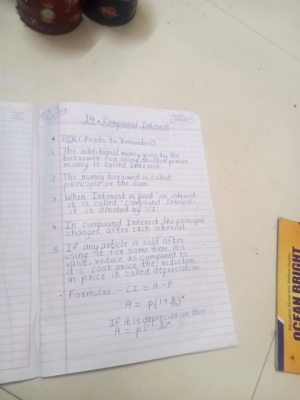 14. Compound Interest
• PTR (Points to Remember)
1. The additional money given by the
borrower for using another person
money is called Interest.
2. The money borrowed is called
principle or the sum
3. When Interest is paid on interest
it is called compound Interest.
it is denoted by CI
4. In compound Interest, the principal
changes after each interval
5. If any article is sold after
using it for some time, it's
value reduce as compared to
it's cost price, the reduction
in price is called depreciation
• Formulas :- CI = A - P
A = P(1 + R/100)ⁿ
If it is depreciation then :-
A = P(1 - R/100)ⁿ
OCEAN BRIGHT